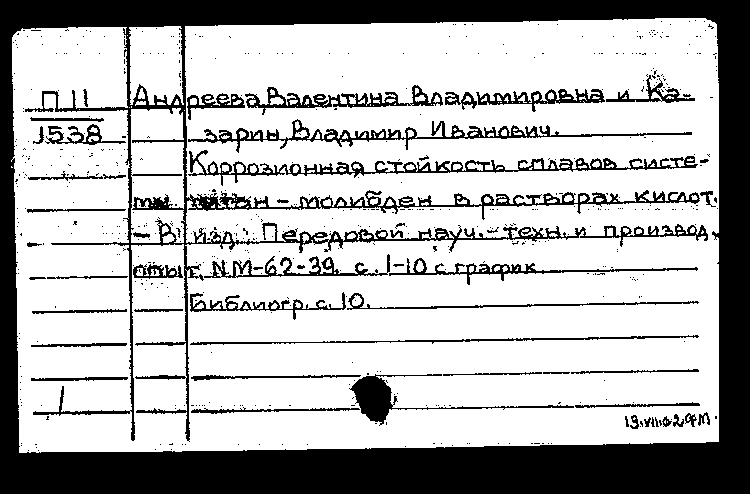 П 11 Андреева, Валентина Владимировна и Ка-
1538 зарин, Владимир Иванович.
Коррозионная стойкость сплавов систе-
мы титан - молибден в растворах кислот.
- В изд.: Передовой науч.-техн. и производ.
опыт, N М-62-39. с. 1-10 с график.
Библиогр. с. 10.
1